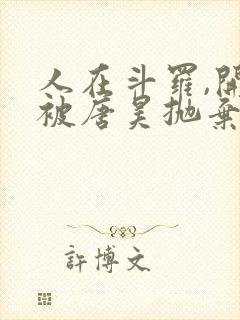 人在斗羅,開
被唐昊抛棄
許博文